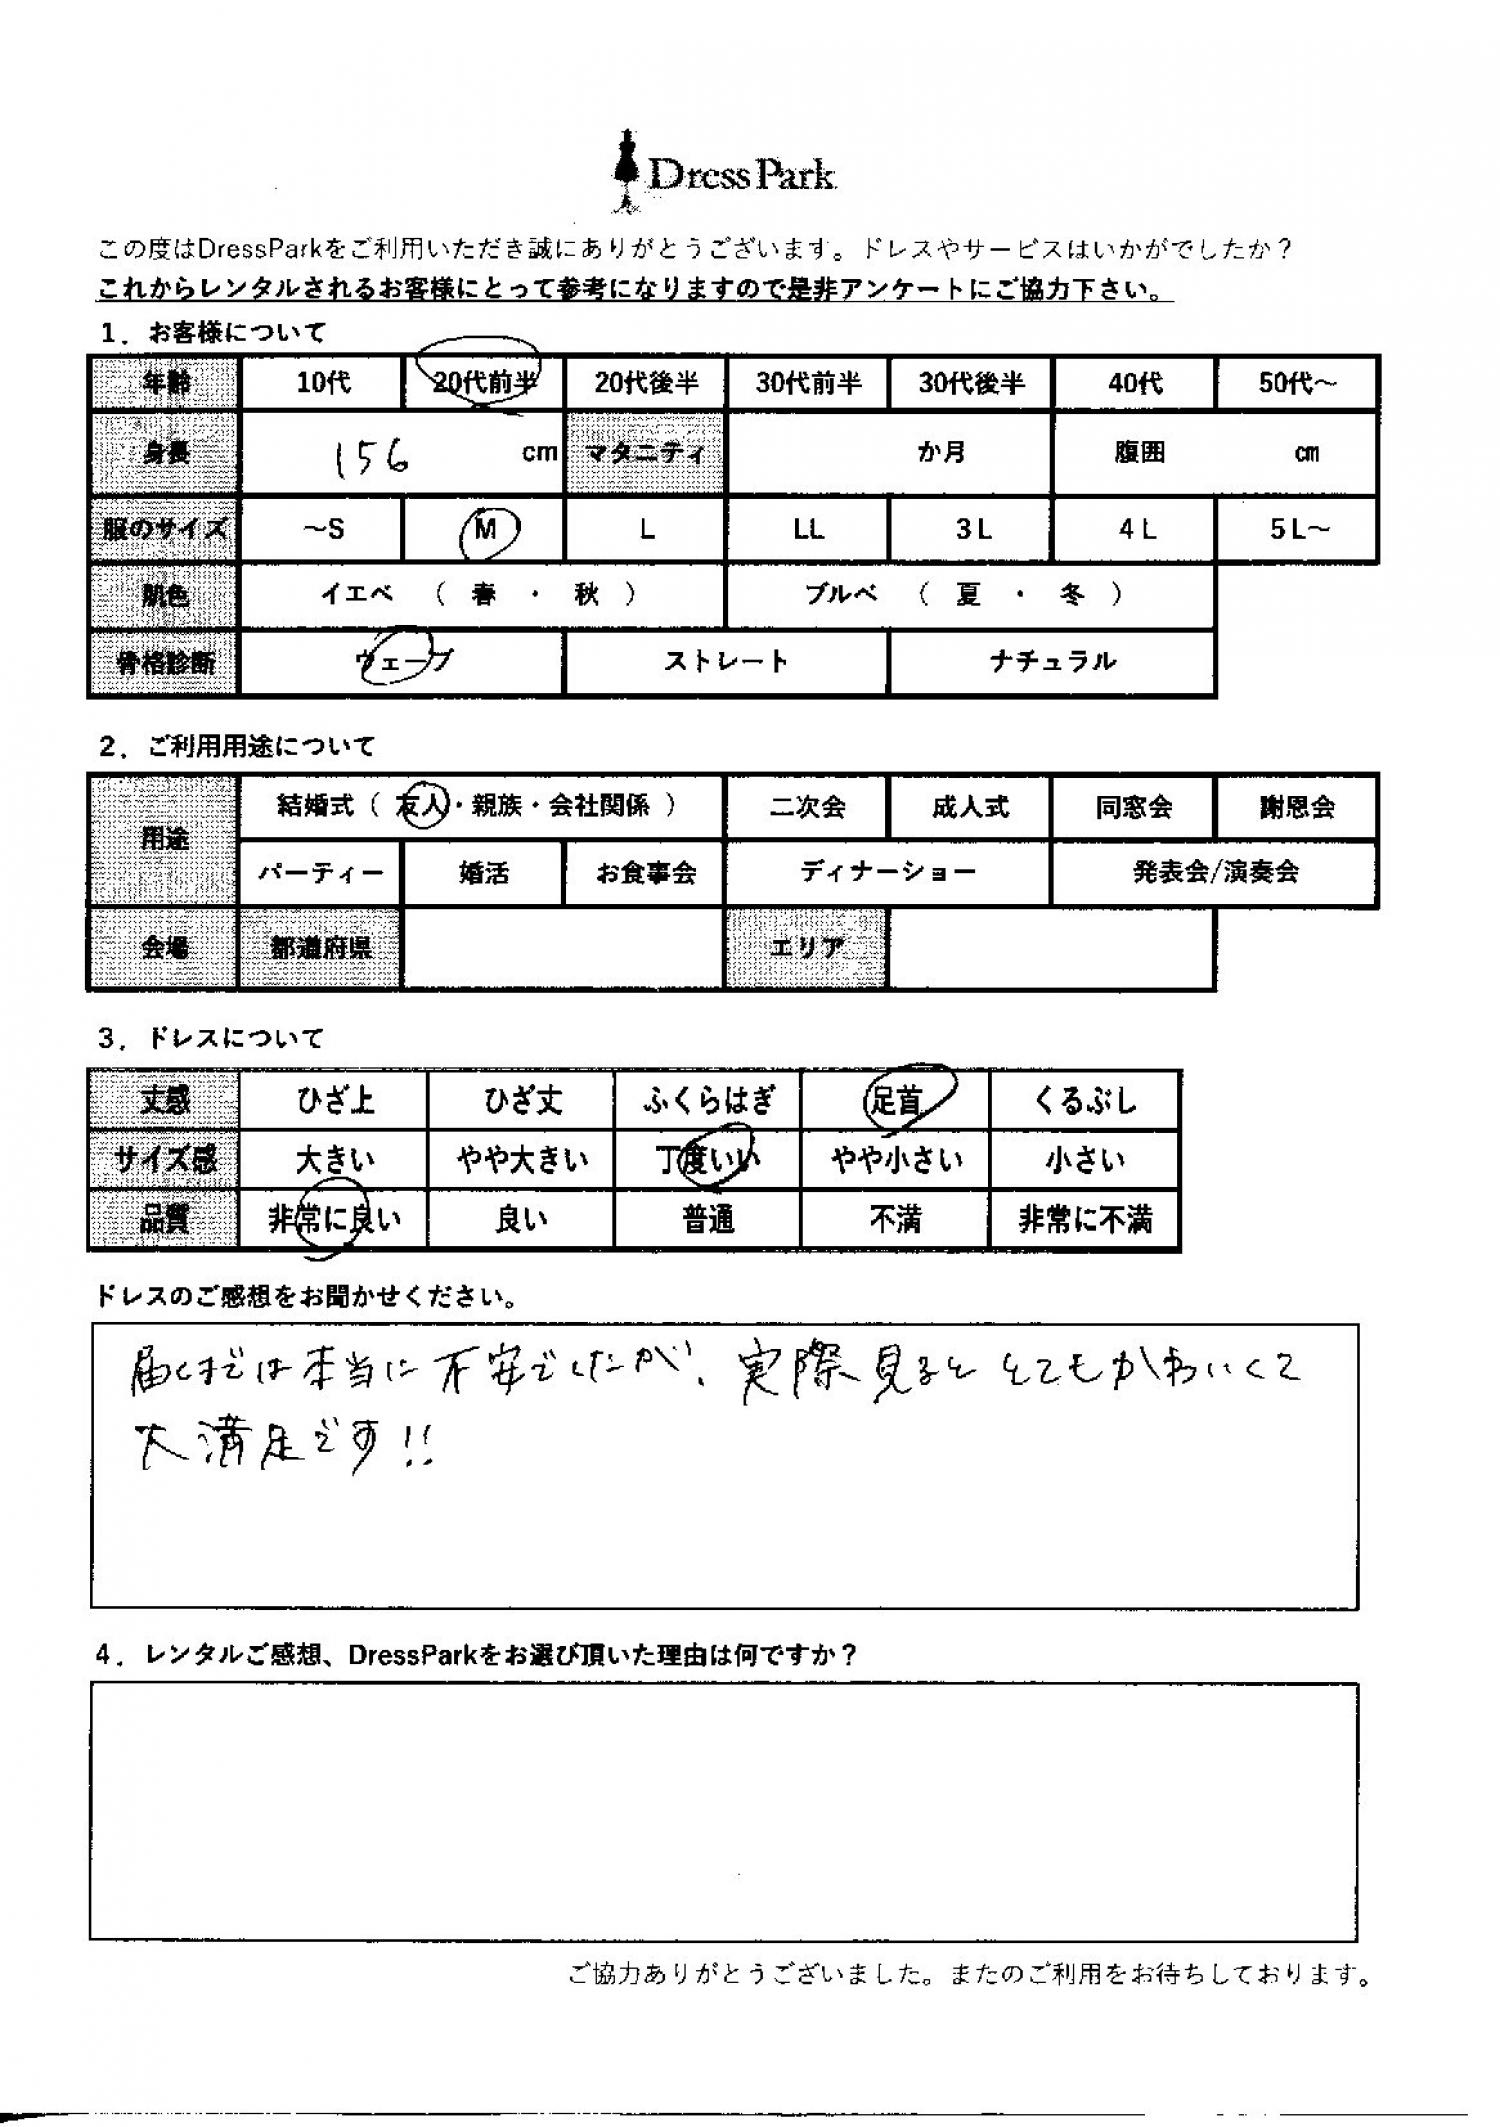 DressPark
この度はDressParkをご利用いただき誠にありがとうございます。ドレスやサービスはいかがでしたか？
これからレンタルされるお客様にとって参考になりますので是非アンケートにご協力下さい。
1．お客様について
年齢 10代 20代前半 20代後半 30代前半 30代後半 40代 50代～
身長 156 cm マタニティ か月 腹囲 ㎝
服のサイズ ～S M L LL 3L 4L 5L～
肌色 イエベ （ 春 ・ 秋 ） ブルベ （ 夏 ・ 冬 ）
骨格診断 ウェーブ ストレート ナチュラル
2．ご利用用途について
用途 結婚式（ 友人・親族・会社関係 ） 二次会 成人式 同窓会 謝恩会
パーティー 婚活 お食事会 ディナーショー 発表会/演奏会
会場 都道府県 エリア
3．ドレスについて
丈感 ひざ上 ひざ丈 ふくらはぎ 足首 くるぶし
サイズ感 大きい やや大きい 丁度いい やや小さい 小さい
品質 非常に良い 良い 普通 不満 非常に不満
ドレスのご感想をお聞かせください。
届くまでは本当に不安でしたが、実際見るととてもかわいくて
大満足です!!
4．レンタルご感想、DressParkをお選び頂いた理由は何ですか？
ご協力ありがとうございました。またのご利用をお待ちしております。